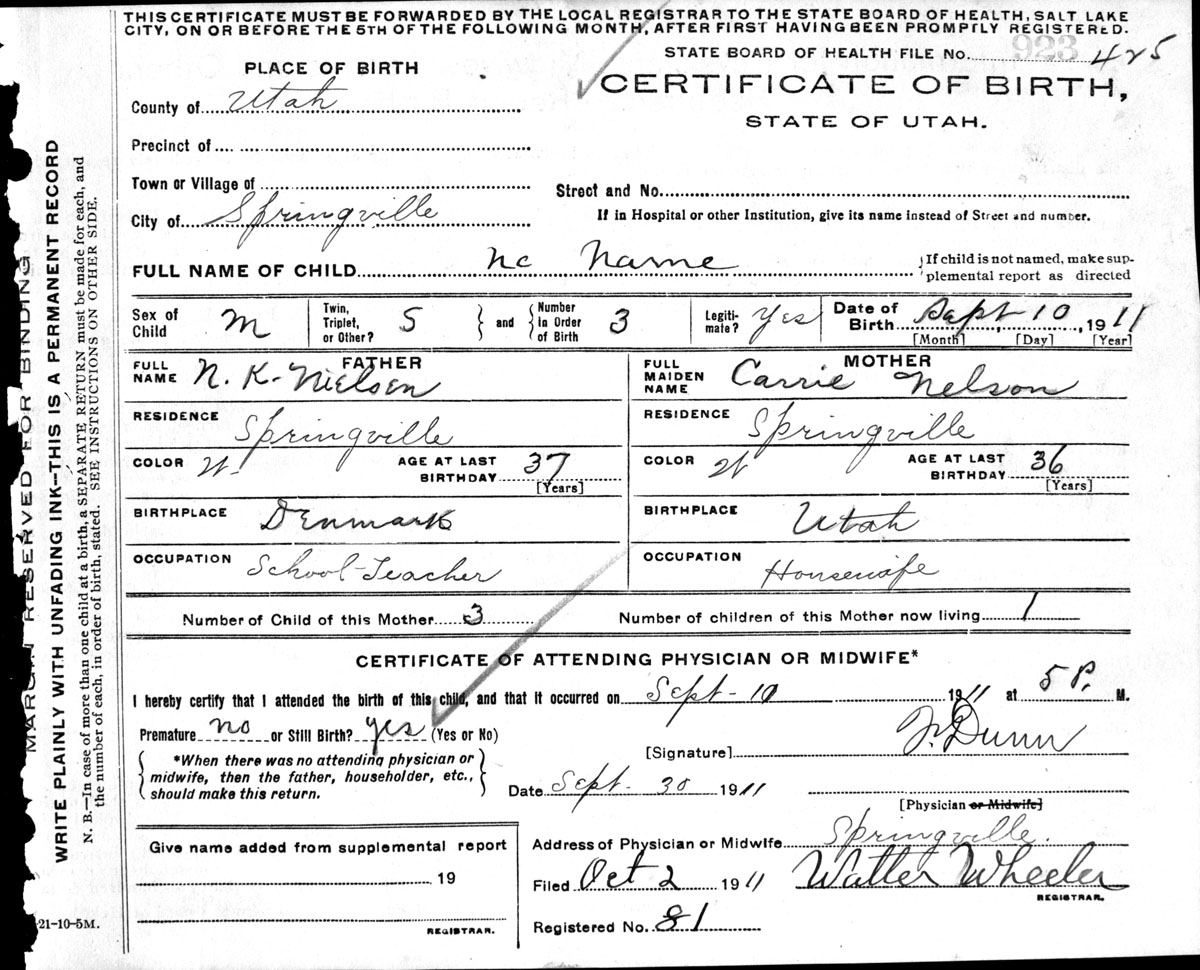 THIS CERTIFICATE MUST BE FORWARDED BY THE LOCAL REGISTRAR TO THE STATE BOARD OF HEALTH, SALT LAKE
CITY, ON OR BEFORE THE 5TH OF THE FOLLOWING MONTH, AFTER FIRST HAVING BEEN PROMPTLY REGISTERED.
STATE BOARD OF HEALTH FILE No. 923 425
PLACE OF BIRTH
CERTIFICATE OF BIRTH,
STATE OF UTAH.
County of Utah
Precinct of
Town or Village of
Street and No.
City of Springville
If in Hospital or other Institution, give its name instead of Street and number.
FULL NAME OF CHILD No Name
If child is not named, make sup-
plemental report as directed
Sex of Child M
Twin, Triplet, or Other? S
and
Number in Order of Birth 3
Legiti-mate? Yes
Date of Birth Sept 10, 1911
[Month] [Day] [Year]
FATHER
FULL NAME N. K. Nielsen
MOTHER
FULL MAIDEN NAME Carrie Nelson
RESIDENCE Springville
RESIDENCE Springville
COLOR W
AGE AT LAST BIRTHDAY 37
[Years]
COLOR W
AGE AT LAST BIRTHDAY 36
[Years]
BIRTHPLACE Denmark
BIRTHPLACE Utah
OCCUPATION School Teacher
OCCUPATION Housewife
Number of Child of this Mother 3
Number of children of this Mother now living 1
CERTIFICATE OF ATTENDING PHYSICIAN OR MIDWIFE*
I hereby certify that I attended the birth of this child, and that it occurred on Sept-10 1911 at 5 P. M.
Premature no or Still Birth? yes (Yes or No)
[Signature] Dunn
*When there was no attending physician or
midwife, then the father, householder, etc.,
should make this return.
Date Sept-30 1911
[Physician or Midwife]
Give name added from supplemental report
19
REGISTRAR.
Address of Physician or Midwife Springville.
Filed Oct 2 1911 Walter Wheeler
REGISTRAR.
Registered No. 81
21-10-5M.
MARGIN RESERVED FOR BINDING
WRITE PLAINLY WITH UNFADING INK—THIS IS A PERMANENT RECORD
N. B.—In case of more than one child at a birth, a SEPARATE RETURN must be made for each, and
the number of each, in order of birth, stated. SEE INSTRUCTIONS ON OTHER SIDE.